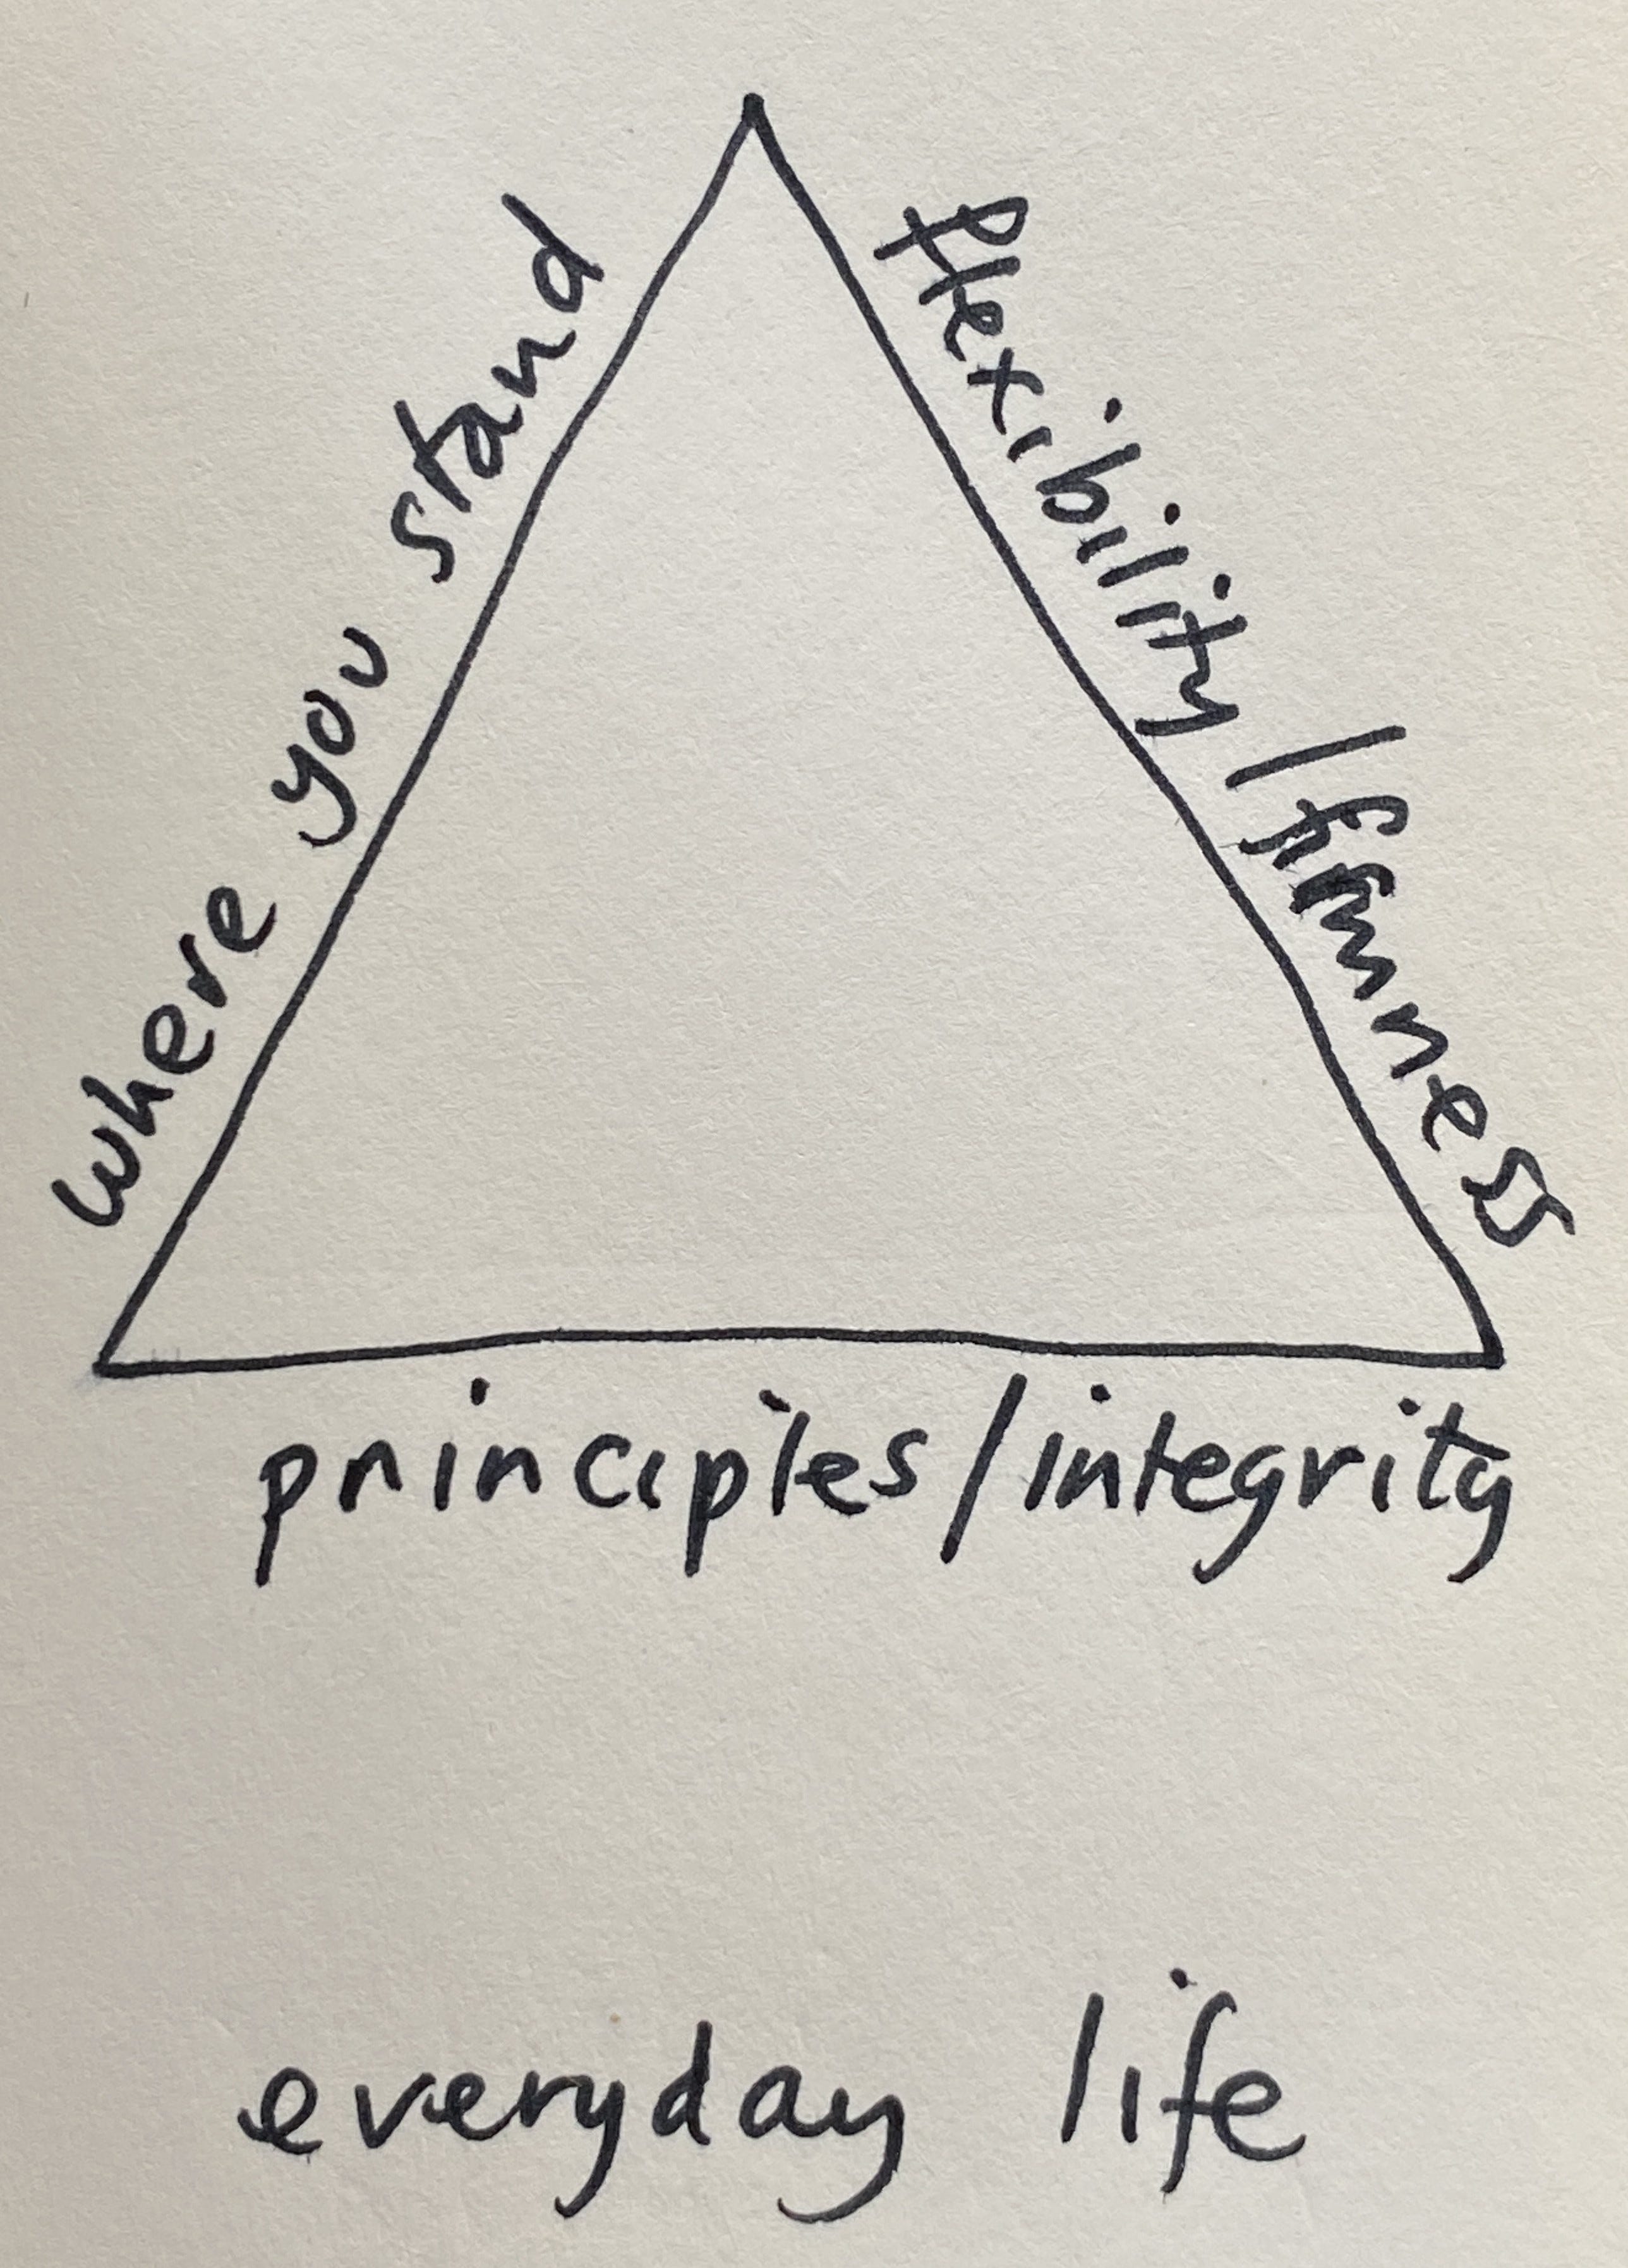 where you stand
flexibility / firmness
principles/integrity
everyday life